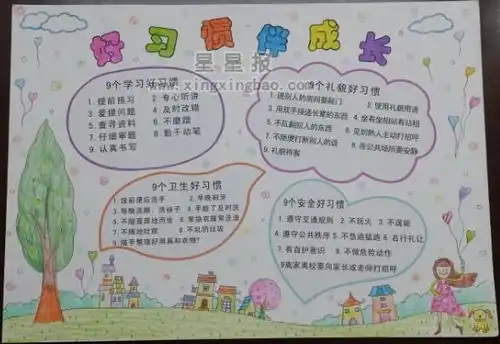 好习惯伴成长
星星报
www.xingxingbao.com
9个学习好习惯
1. 提前预习 2. 专心听讲
3. 爱提问题 4. 及时改错
5. 查寻资料 6. 不磨蹭
7. 仔细审题 8. 勤于动笔
9. 认真书写
9个礼貌好习惯
1. 进别人的房间要敲门 2. 使用礼貌用语
3. 用双手接递长辈的东西 4. 坐有坐相站有站相
5. 不乱翻别人的东西 6. 见到熟人主动打招呼
7. 不随便打断别人的话 8. 在公共场所要安静
9. 礼貌待客
9个卫生好习惯
1. 饭前便后洗手 2. 早晚刷牙
3. 每晚洗脚、洗袜子 4. 手脏了及时洗
5. 不随意席地而坐 6. 常换衣服常洗澡
7. 不随地吐痰 8. 不乱扔垃圾
9. 随手整理好用具和衣物?
9个安全好习惯
1. 遵守交通规则 2. 不玩火 3. 不逞能
4. 遵守公共秩序 5. 不急追猛跑 6. 右行礼让
7. 有自护意识 8. 不做危险动作
9离家离校要向家长或老师打招呼